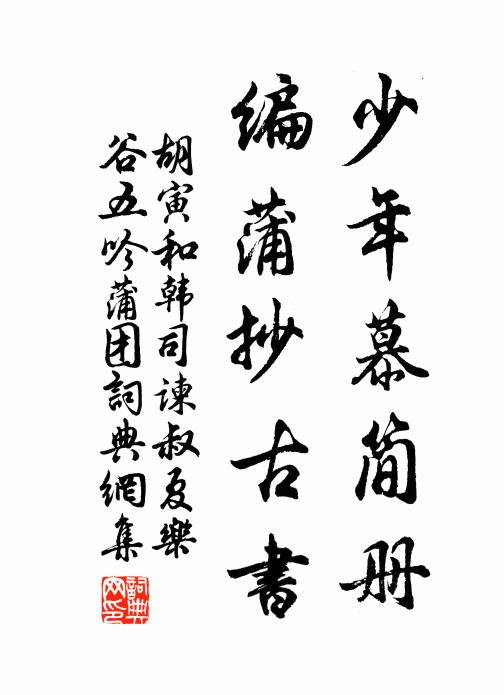 少年慕简册
编蒲抄古書
胡寅和韩司谏叔夏樂
谷五吟蒲团詞典網集
詞典网印